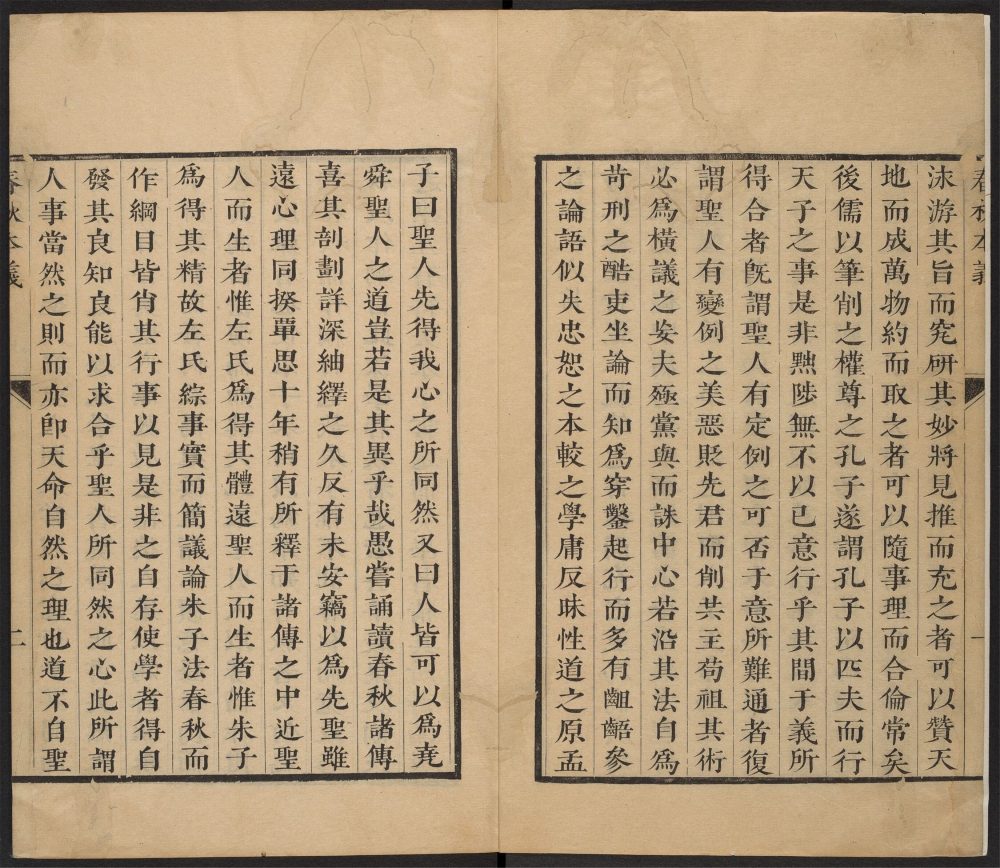 春秋本義
一
沬游其旨而究研其妙將見推而充之者可以贊天
地而成萬物約而取之者可以隨事理而合倫常矣
後儒以筆削之權尊之孔子遂謂孔子以匹夫而行
天子之事是非黜陟無不以已意行乎其間于義所
得合者旣謂聖人有定例之可否于意所難通者復
謂聖人有變例之美惡貶先君而削共主苟祖其術
必爲橫議之妄夫殛黨與而誅中心若沿其法自爲
苛刑之酷吏坐論而知爲穿鑿起行而多有齟齬參
之論語似失忠恕之本較之學庸反昧性道之原孟
子曰聖人先得我心之所同然又曰人皆可以爲堯
舜聖人之道豈若是其異乎哉愚嘗誦讀春秋諸傳
喜其剖劃詳深紬繹之久反有未安竊以爲先聖雖
遠心理同揆覃思十年稍有所釋于諸傳之中近聖
人而生者惟左氏爲得其體遠聖人而生者惟朱子
爲得其精故左氏綜事實而簡議論朱子法春秋而
作綱目皆肖其行事以見是非之自存使學者得自
發其良知良能以求合乎聖人所同然之心此所謂
人事當然之則而亦卽天命自然之理也道不自聖
春秋本義
二